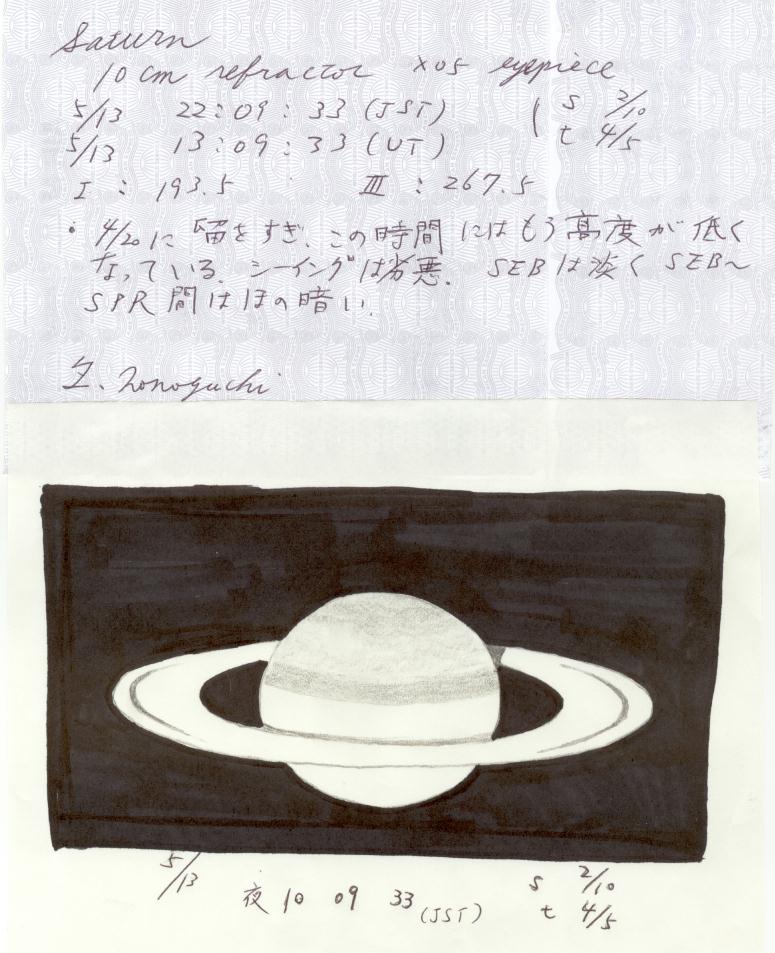 Saturn
10 cm refractor ×05 eyepiece
5/13 22:09:33 (JST) ( s 2/10
5/13 13:09:33 (UT) t 4/5
I : 193.5 III : 267.5
• 4/20に留をすぎ、この時間にはもう高度が低く
なっている. シーイングは劣悪. SEBは淡く SEB〜
SPR間はほの暗い.
Z. Nonoguchi
5/13 夜 10 09 33 (JST) s 2/10
t 4/5